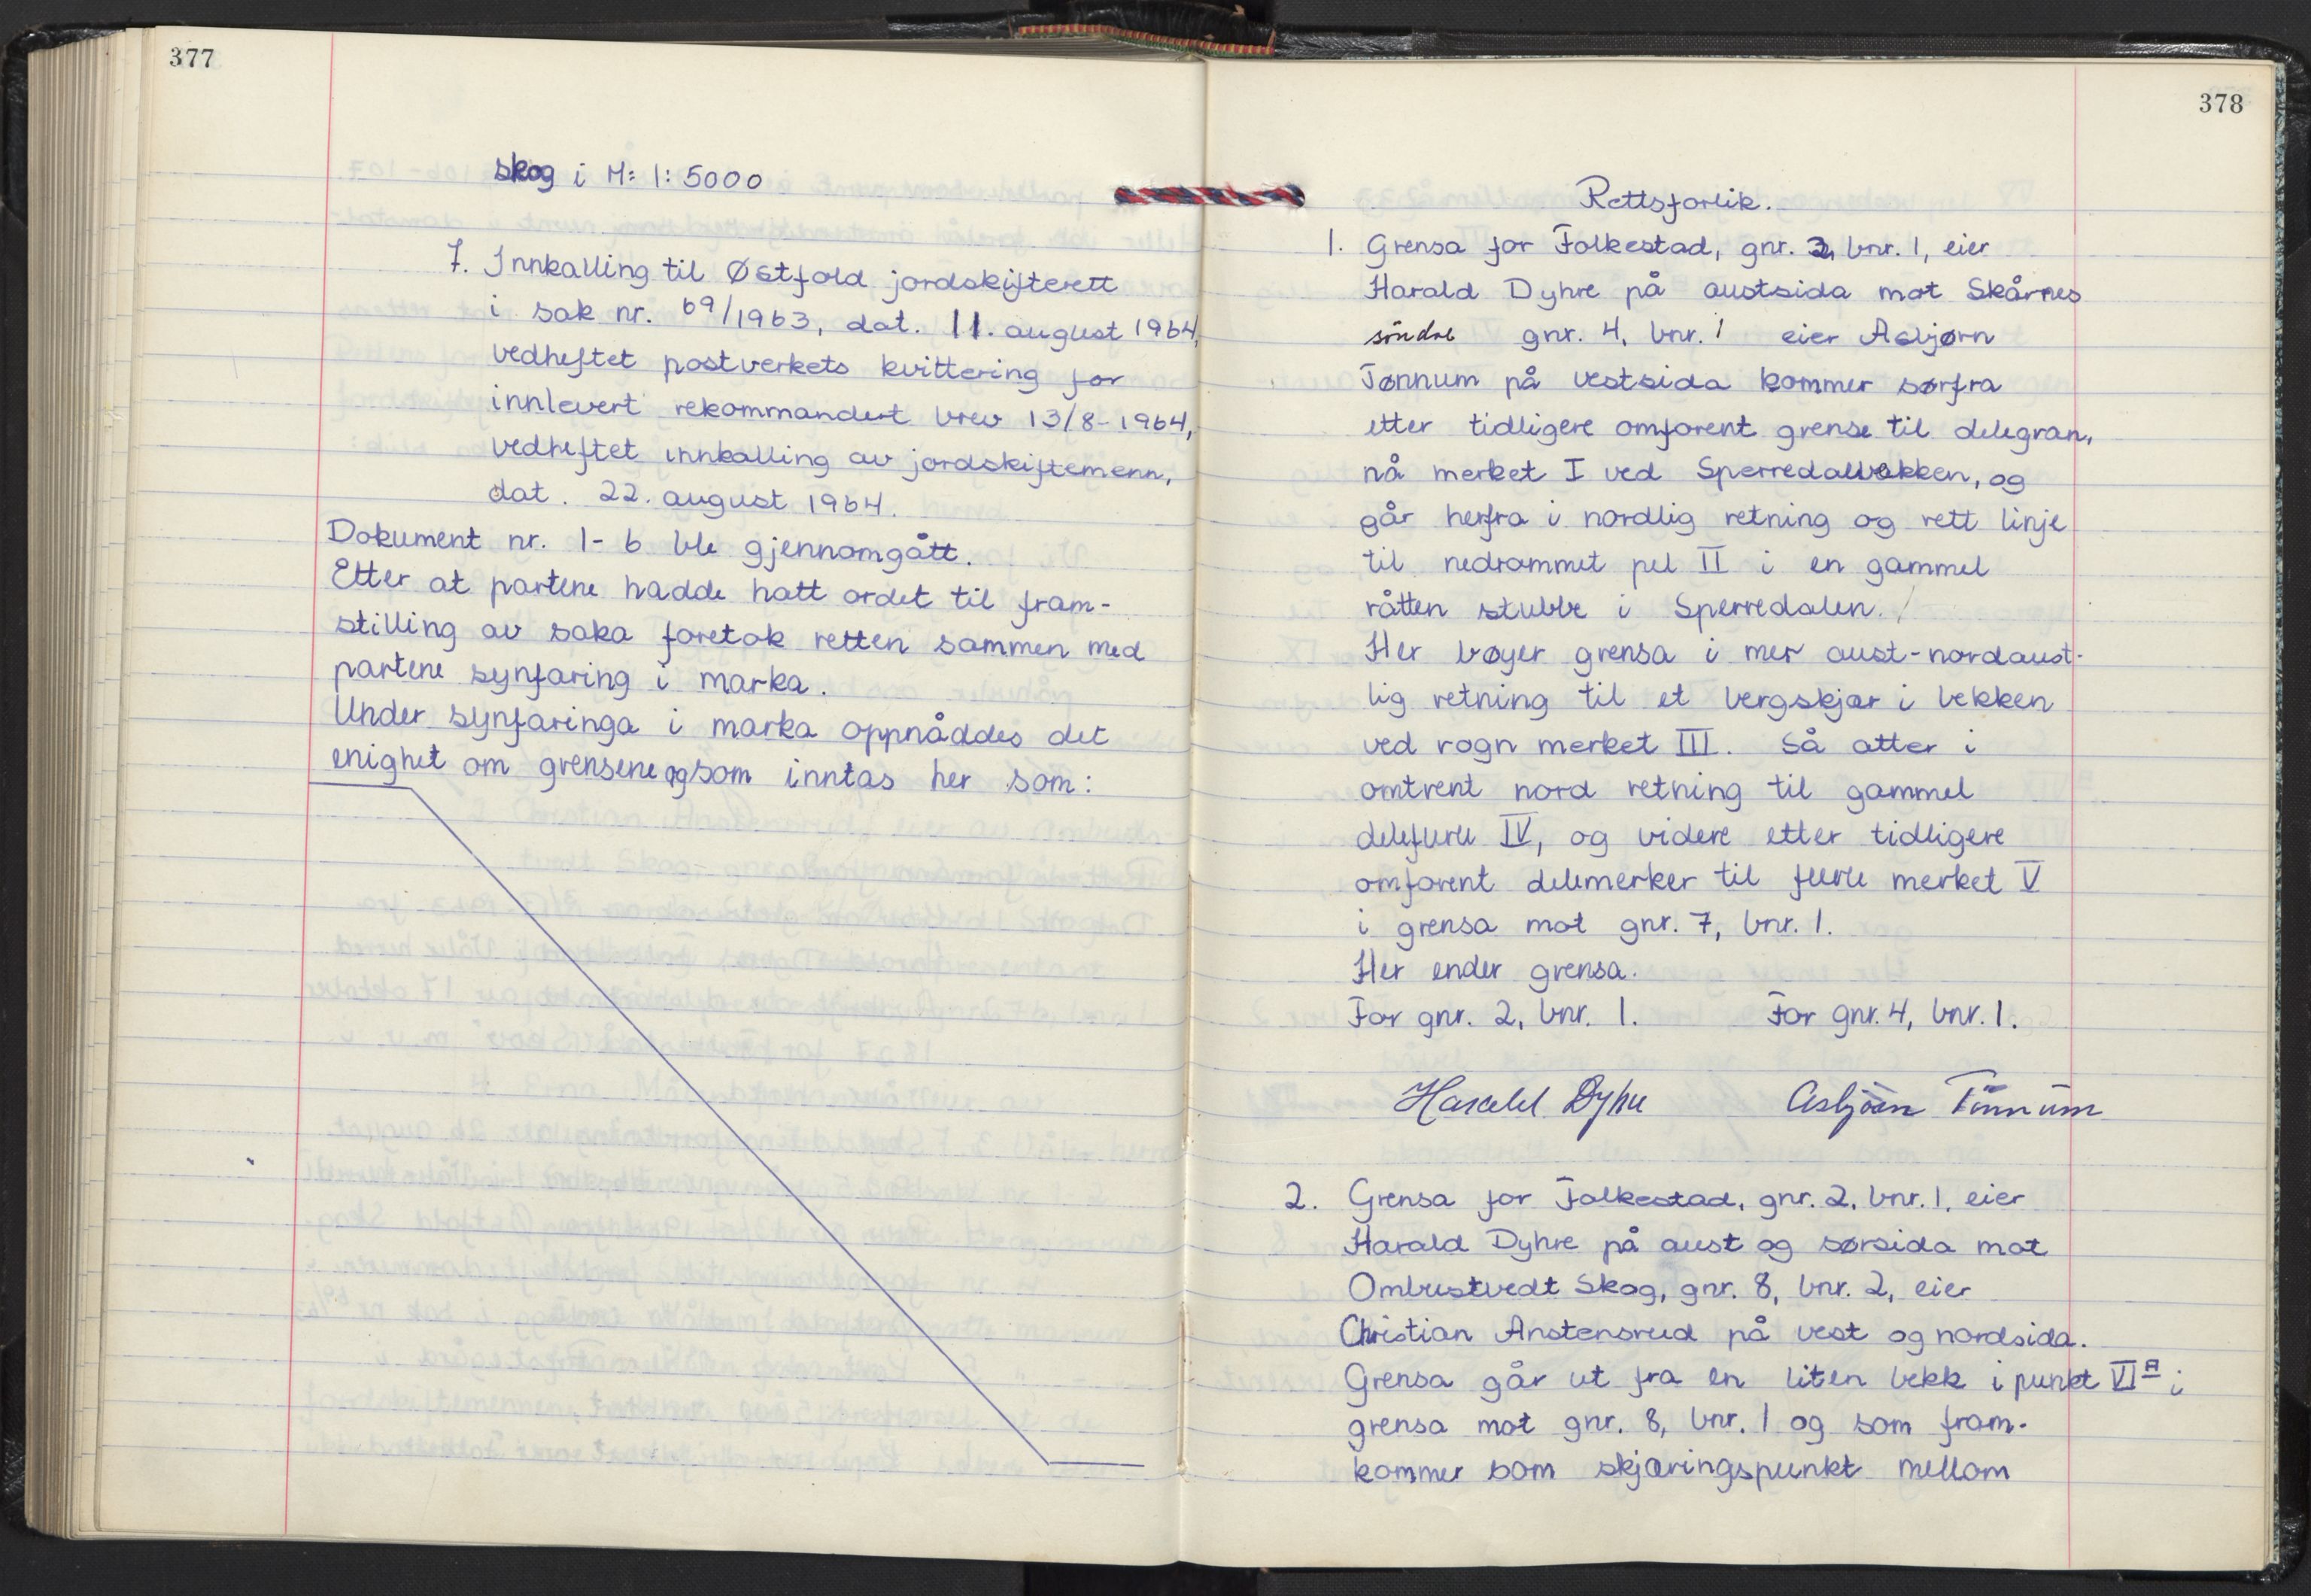 377
skog i M= 1:5000
7. Innkalling til Østfold jordskifterett
i sak nr. 69/1963, dat. 11. august 1964,
vedheftet postverkets kvittering for
innlevert rekommandert brev 13/8-1964,
vedheftet innkalling av jordskiftemenn,
dat. 22. august 1964.
Dokument nr. 1-6 ble gjennomgått.
Etter at partene hadde hatt ordet til fram-
stilling av saka foretok retten sammen med
partene synfaring i marka.
Under synfaringa i marka oppnåddes det
enighet om grensene og som inntas her som:
378
Rettsforlik.
1. Grensa for Folkestad, gnr. 2, bnr. 1, eier
Harald Dyhre på austsida mot Skårnes
søndre gnr. 4, bnr. 1 eier Asbjørn
Tønnum på vestsida kommer sørfra
etter tidligere omforent grense til delegran,
nå merket I ved Sperredalbekken, og
går herfra i nordlig retning og rett linje
til nedrammet pel II i en gammel
råtten stubbe i Sperredalen.
Her bøyer grensa i mer aust-nordaust-
lig retning til et bergskjær i bekken
ved rogn merket III. Så atter i
omtrent nord retning til gammel
delefuru IV, og videre etter tidligere
omforent delemerker til furu merket V
i grensa mot gnr. 7, bnr. 1.
Her ender grensa.
For gnr. 2, bnr. 1. For gnr. 4, bnr. 1.
Harald Dyhre Asbjørn Tønnum
2. Grensa for Folkestad, gnr. 2, bnr. 1, eier
Harald Dyhre på aust og sørsida mot
Ombustvedt Skog, gnr. 8, bnr. 2, eier
Christian Anstensrud på vest og nordsida.
Grensa går ut fra en liten bekk i punkt VI a i
grensa mot gnr. 8, bnr. 1 og som fram-
kommer som skjæringspunkt mellom